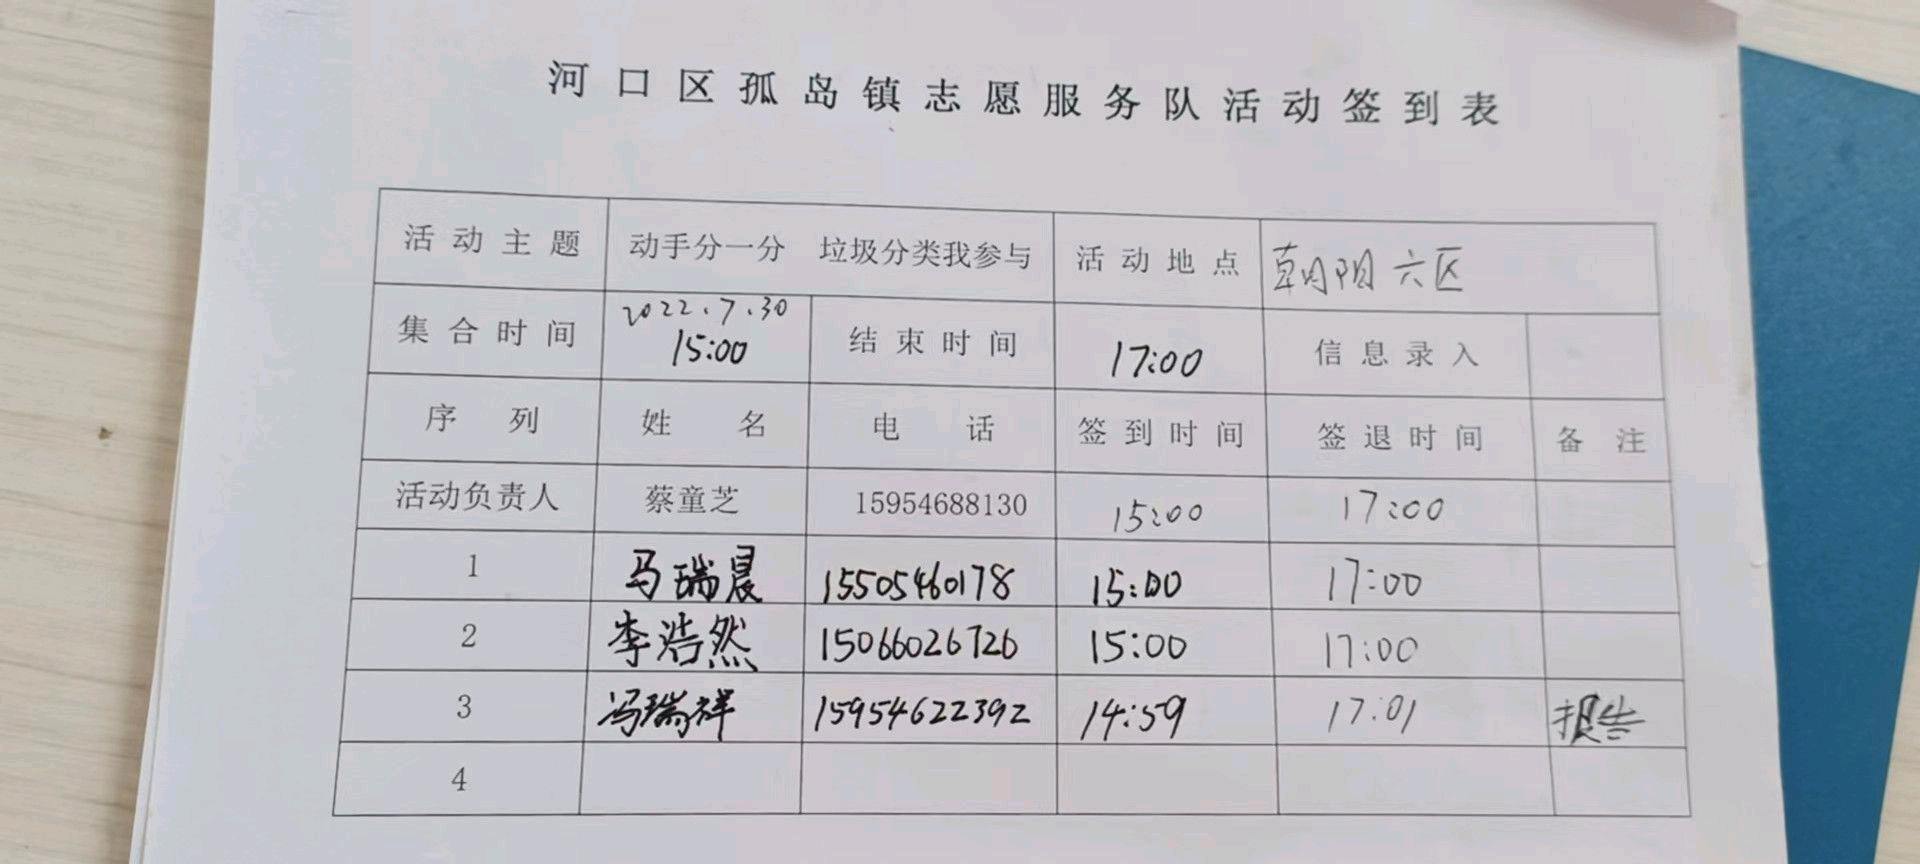 河口区孤岛镇志愿服务队活动签到表
活动主题 动手分一分 垃圾分类我参与 活动地点 朝阳六区
集合时间 2022.7.30 15:00 结束时间 17:00 信息录入
序列 姓名 电话 签到时间 签退时间 备注
活动负责人 蔡童芝 15954688130 15:00 17:00
1 马瑞晨 15505460178 15:00 17:00
2 李浩然 15066026726 15:00 17:00
3 冯瑞祥 15954622392 14:59 17:01 报告
4